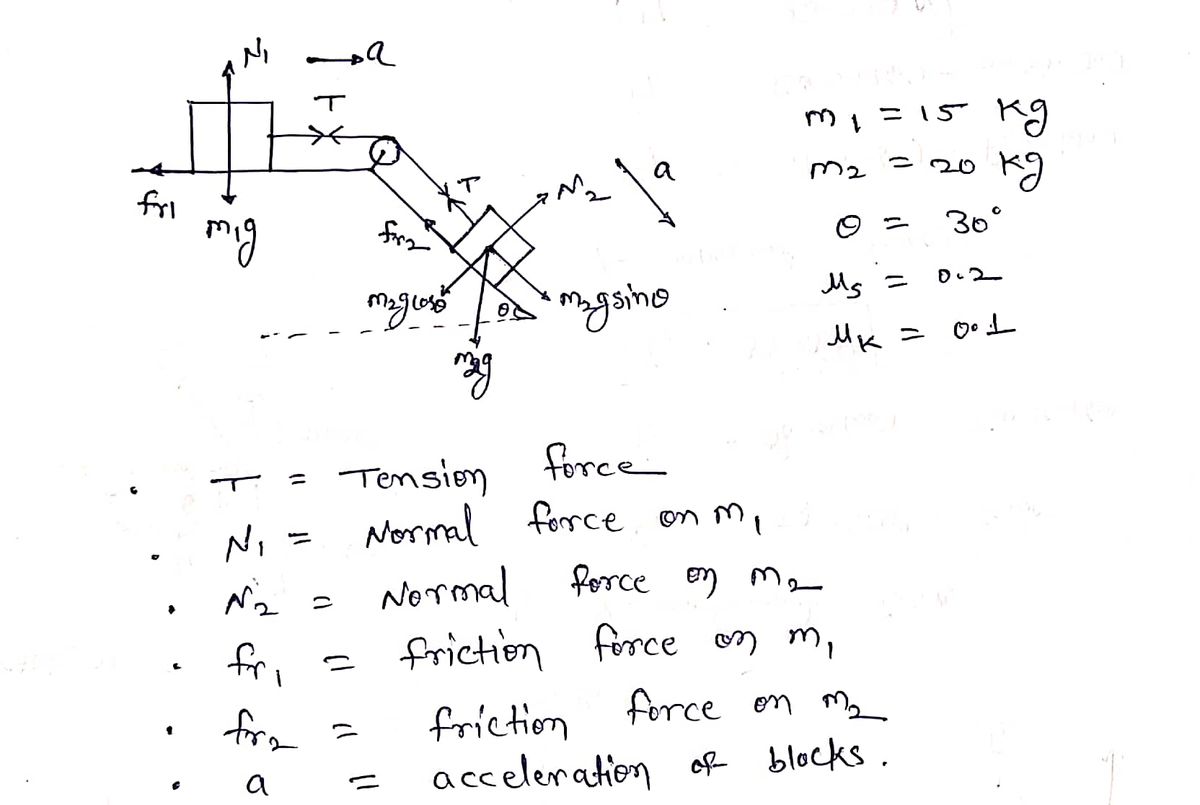 N₁ a
T
fr1
m₁g
T
N₂
a
fr₂
m₂gcosθ
θ
m₂gsinθ
m₂g
m₁ = 15 kg
m₂ = 20 kg
θ = 30°
μs = 0.2
μK = 0.1
• T = Tension force
• N₁ = Normal force on m₁
• N₂ = Normal force on m₂
• fr₁ = friction force on m₁
• fr₂ = friction force on m₂
• a = acceleration of blocks.